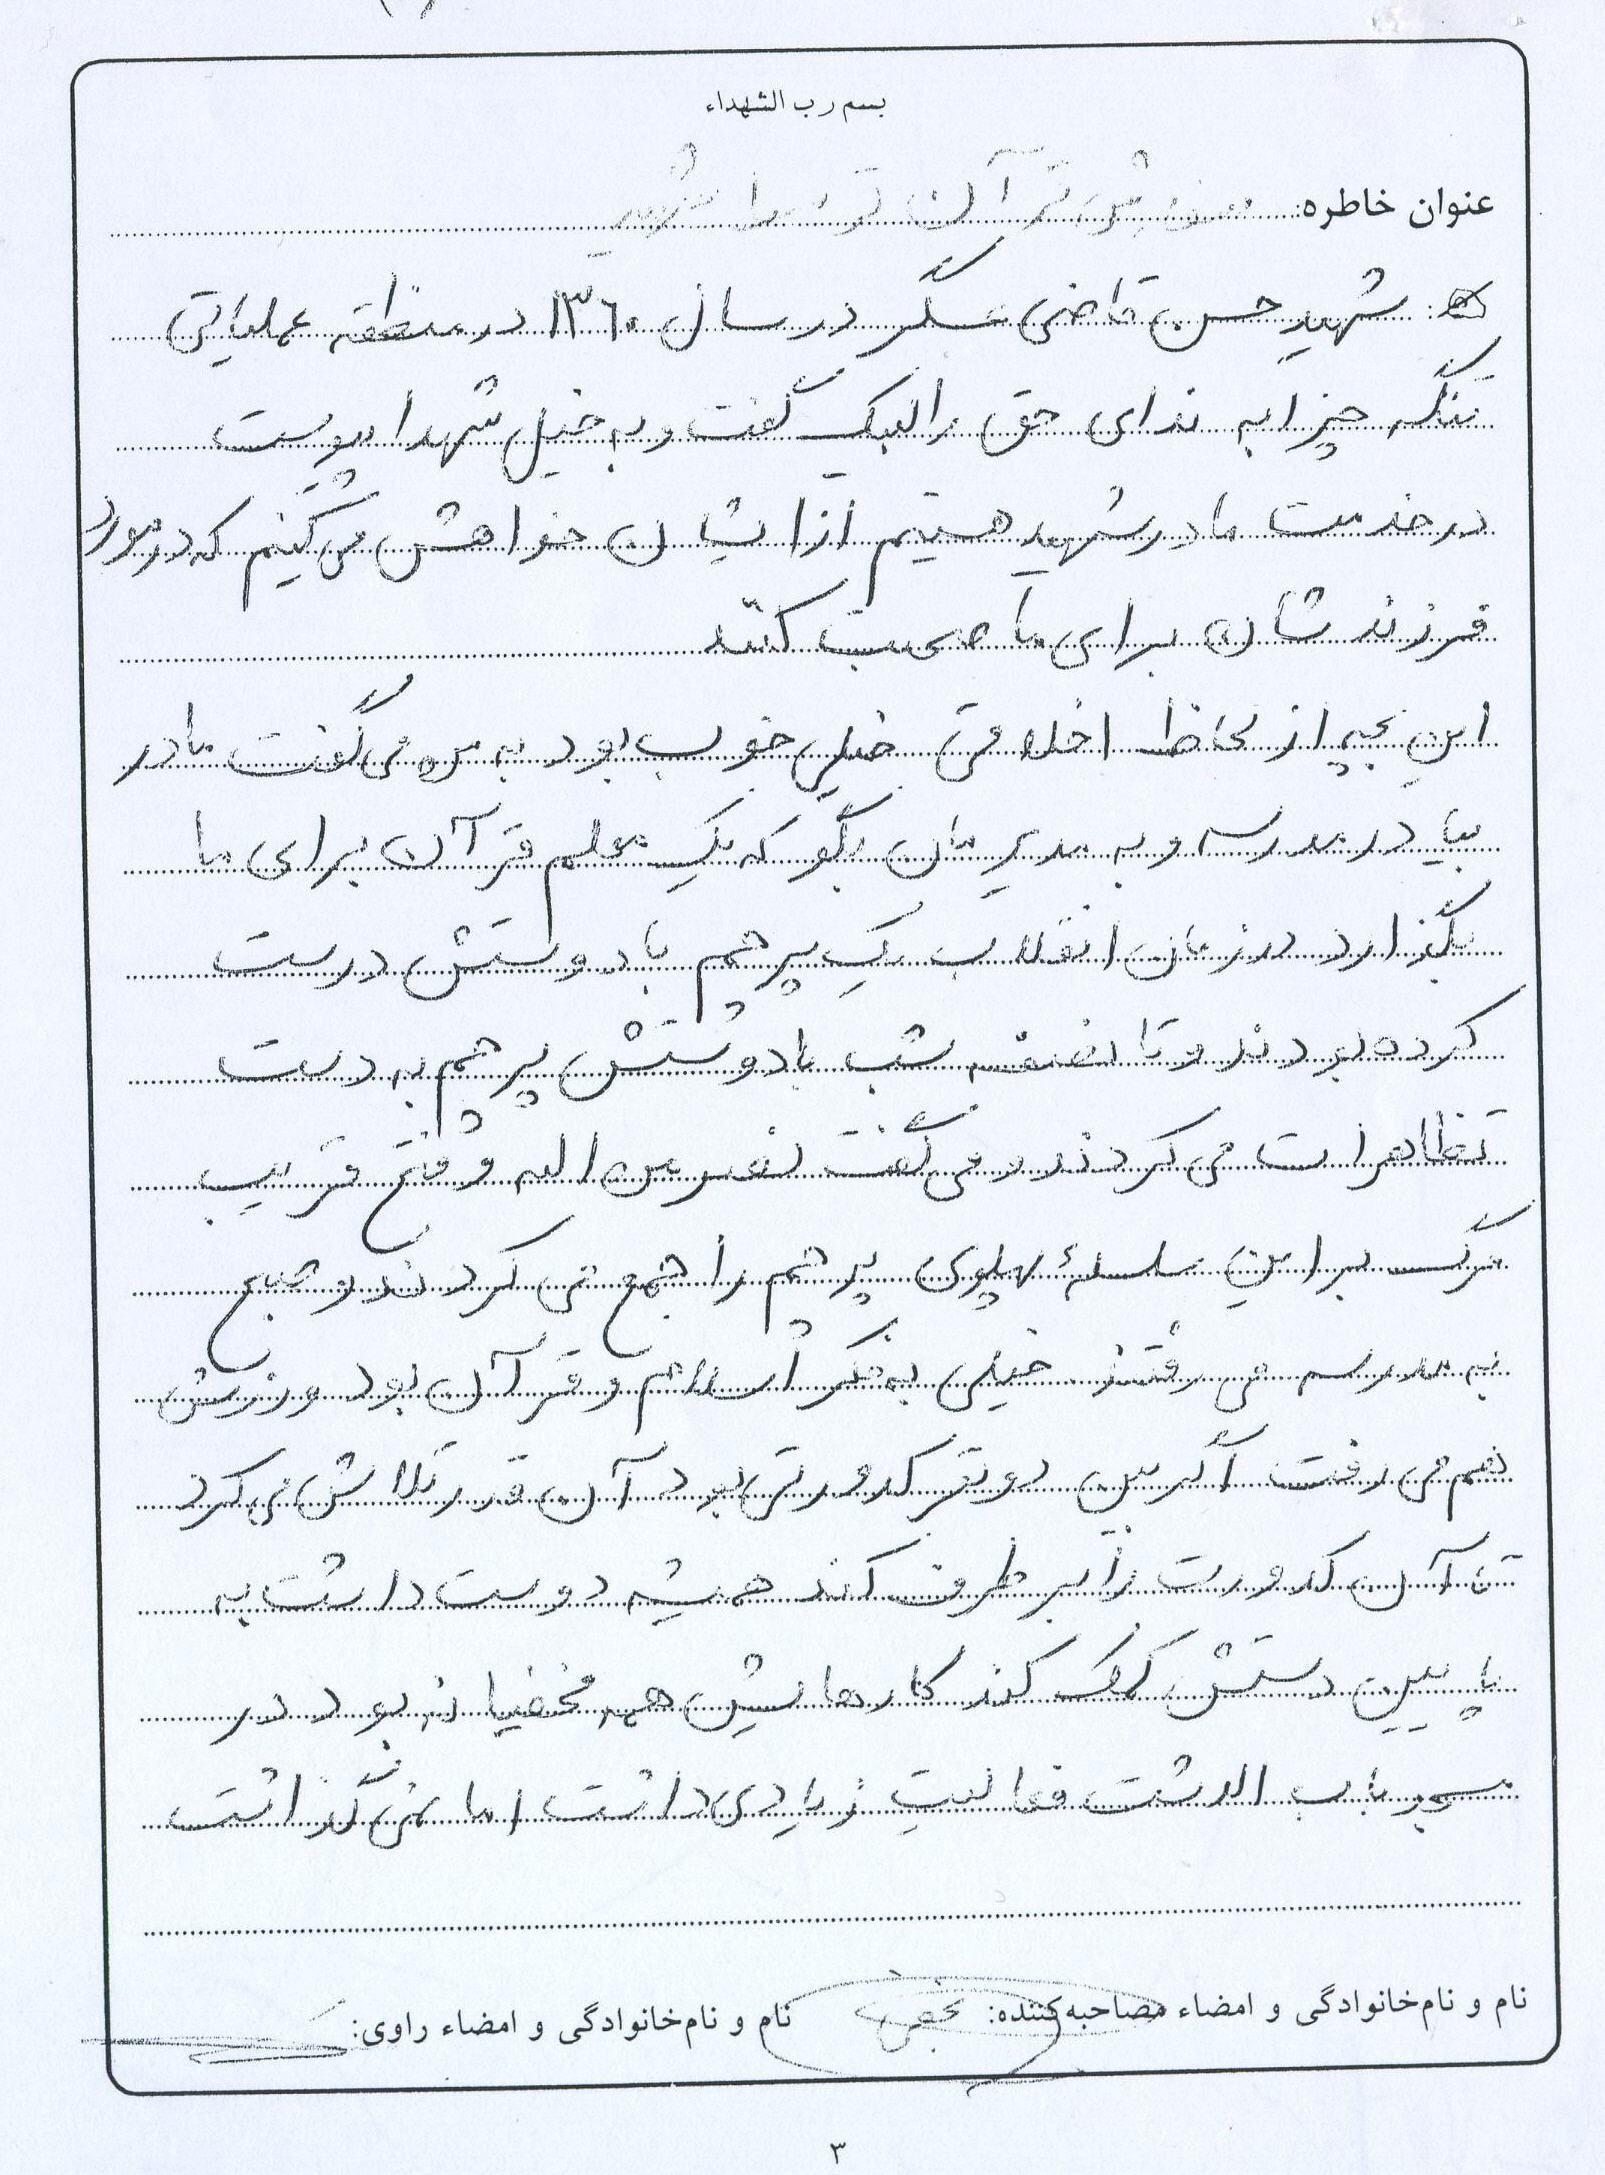 بسم رب الشهداء
عنوان خاطره: قرآن توسط شهید
شهید حسن قاضی عسگر در سال ۱۳۶۰ در منطقه عملیاتی
تنگه چزابه ندای حق را لبیک گفت و به خیل شهدا پیوست
در خدمت مادر شهید هستیم از ایشان خواهش می کنیم که در مورد
فرزندشان برای ما صحبت کنند
این بچه از لحاظ اخلاقی خیلی خوب بود به من می گفت مادر
بیا در مدرسه و به مدیرمان بگو که یک معلم قرآن برای ما
بگذارد در زمان انقلاب یک پرچم با دوستش درست
کرده بودند و تا نصفه شب با دوستش پرچم به دست
تظاهرات می کردند و می گفت نصر من الله و فتح قریب
مرگ بر این سلسلۀ پهلوی پرچم را جمع می کردند و صبح
به مدرسه می رفتند خیلی به فکر اسلام و قرآن بود ورزش
هم می رفت اگر بین دو نفر کدورتی بود آن قدر تلاش می کرد
تا آن کدورت را بر طرف کند همیشه دوست داشت به
پایین دستش کمک کند کارهایش هم مخفیانه بود در
مسجد باب الدشت فعالیت زیادی داشت اما نمی گذاشت
نام و نام‌خانوادگی و امضاء مصاحبه‌کننده: نام و نام‌خانوادگی و امضاء راوی:
۳